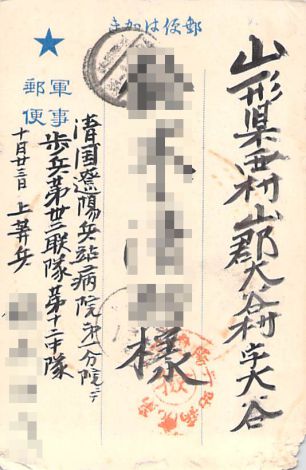 郵便はかき
山形県西村山郡大谷村字大谷
様
軍事
郵便
清国遼陽兵站病院第一分院ニ
歩兵第卅二联隊第十二中隊
十月廿三日 上等兵